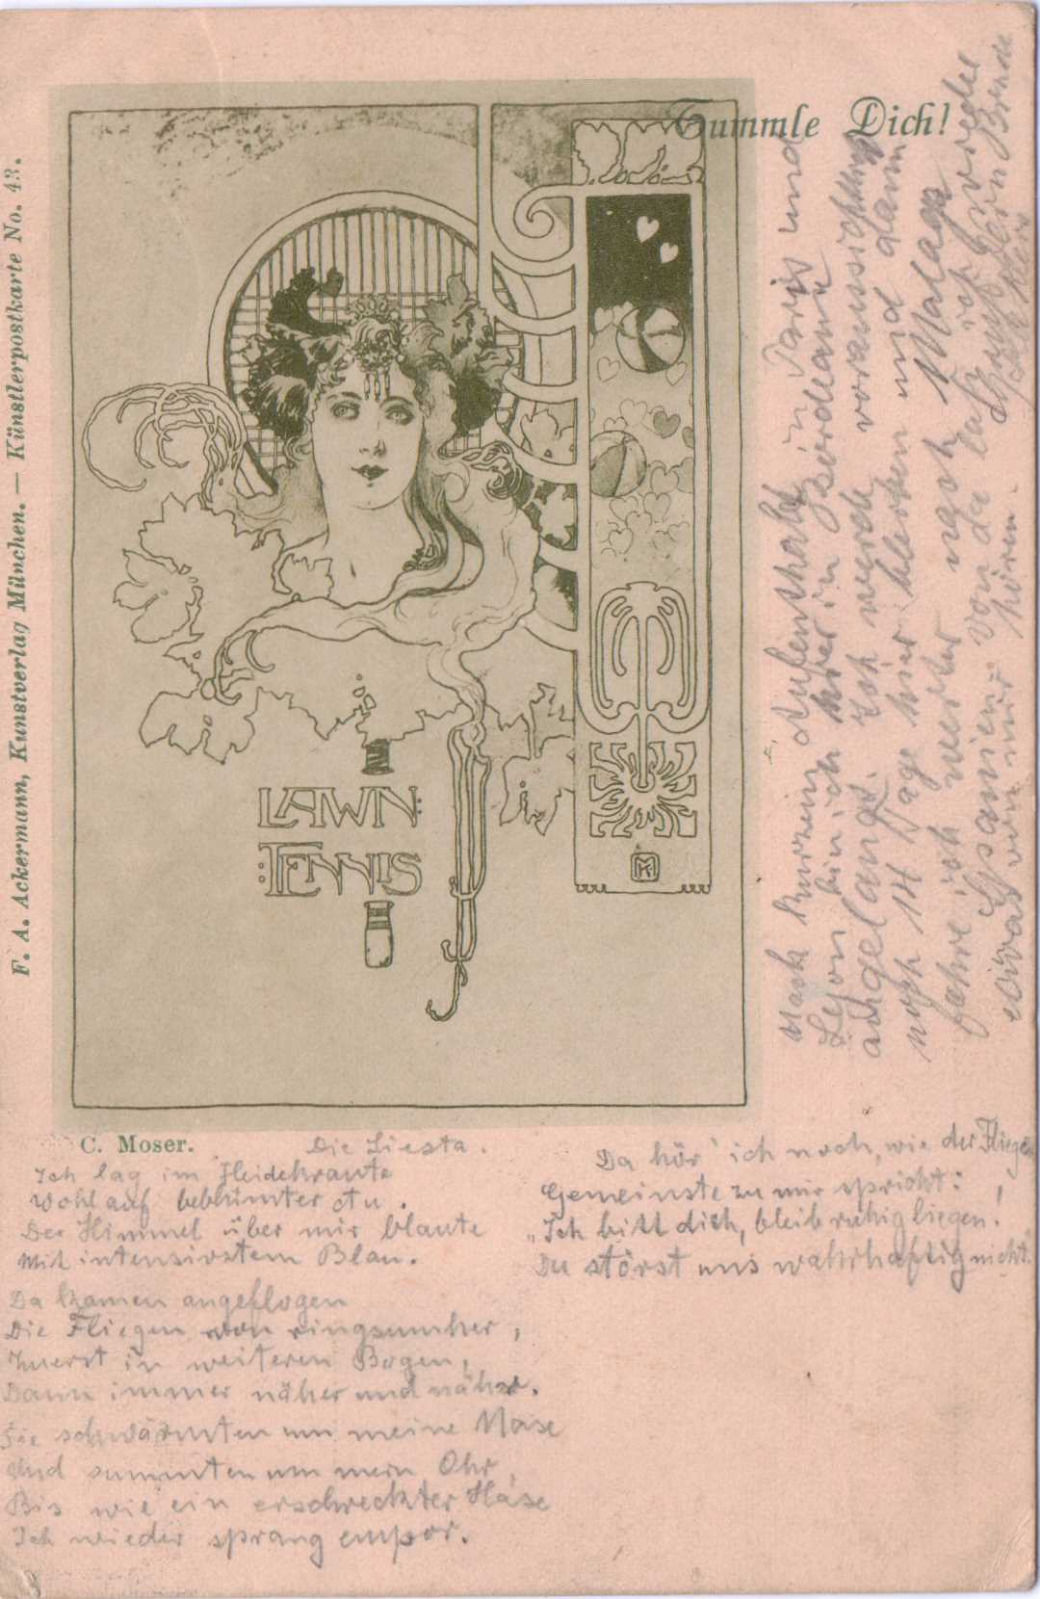 Tummle Dich!
F. A. Ackermann, Kunstverlag München. — Künstlerpostkarte No. 43.
LAWN:
:TENNIS
C. Moser.
Nach kurzem Aufenthalt in Paris und
Lyon bin ich hier in Bordeaux
angelangt. Ich werde voraussichtlich
noch 14 Tage hier bleiben und dann
fahre ich weiter nach Malaga
Spanien. von da laß ich wieder
etwas von mir hören.
Gruß Dein
Die Siesta.
Ich lag im Heidekraute
Wohl auf beblümter Au.
Der Himmel über mir blaute
Mit intensivstem Blau.
Da kamen angeflogen
Die Fliegen von ringsumher,
Zuerst in weiteren Bogen,
Dann immer näher und näher.
Sie schwärmten um meine Nase
Und summten um mein Ohr,
Bis wie ein erschreckter Hase
Ich wieder sprang empor.
Da hör' ich noch, wie der Fliegen
Gemeinste zu mir spricht:
„Ich bitt dich, bleib ruhig liegen!
Du störst uns wahrhaftig nicht."